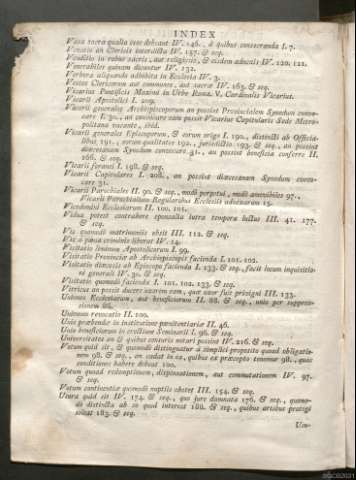 INDEX
Vasa sacra qualia esse debeant IV. 146., à quibus consecranda I. 7.
Venatio an Clericis interdicta IV. 157. & seq.
Venditio in rebus sacris, aut religiosis, & eisdem adnexis IV. 120. 121.
Venerabiles quinam dicantur IV. 132.
Verbera aliquando adhibita in Ecclesia IV. 3.
Vestes Clericorum aut communes, aut sacra IV. 163. & seq.
Vicarius Pontificis Maximi in Urbe Roma. V. Cardinalis Vicarius.
Vicarii Apostolici I. 209.
Vicarii generales Archiepiscoporum an possint Provincialem Synodum convo-
care I. 30., an convocare eam possit Vicarius Capitularis Sede Metro-
politana vacante, ibid.
Vicarii generales Episcoporum, & eorum origo I. 190., distincti ab Officia-
libus 191., eorum qualitates 192., jurisdictio 193. & seq., an possint
diœcesanam Synodum convocare 31., an possint beneficia conferre II.
166. & seq.
Vicarii foranei I. 198. & seq.
Vicarii Capitulares I. 208., an possint diœcesanam Synodum convo-
care 31.
Vicarii Parochiales II. 90. & seq., modò perpetui, modò amovibiles 97.,
Vicarii Parochialium Regularibus Ecclesiis adnexarum 15.
Vicedomini Ecclesiarum II. 100. 101.
Vidua potest contrahere sponsalia intra tempora luctus III. 41. 177.
& seq.
Vis quomodo matrimoniis obsit III. 112. & seq.
Vis à pœna criminis liberat IV. 14.
Visitatio liminum Apostolicarum I. 99.
Visitatio Provinciæ ab Archiepiscopis facienda I. 101. 102.
Visitatio diœcesis ab Episcopo facienda I. 133. & seq., facit locum inquisitio-
ni generali IV. 31. & seq.
Visitatio quomodo facienda I. 101. 102. 133. & seq.
Vitricus an possit ducere uxorem eam, quæ uxor fuit privigni III. 133.
Uniones Ecclesiarum, aut beneficiorum II. 88. & seq., unio per suppres-
sionem 86.
Unionum revocatio II. 100.
Unio præbendæ in institutione pœnitentiariæ II. 46.
Unio beneficiorum in erectione Seminarii I. 96. & seq.
Universitates an & quibus censuris notari possint IV. 216. & seq.
Votum quid sit, & quomodo distinguatur à simplici proposito quoad obligatio-
nem 98. & seq., an cadat in ea, quibus ex præcepto tenemur 98., quas
conditiones habere debeat 100.
Votum quoad redemptionem, dispensationem, aut commutationem IV. 97.
& seq.
Votum continentiæ quomodo nuptiis obstet III. 154. & seq.
Usura quid sit IV. 174. & seq., quo jure damnata 176. & seq., quomo-
do distincta ab eo quod interest 188. & seq., quibus artibus protegi
soleat 183. & seq.
Usu-